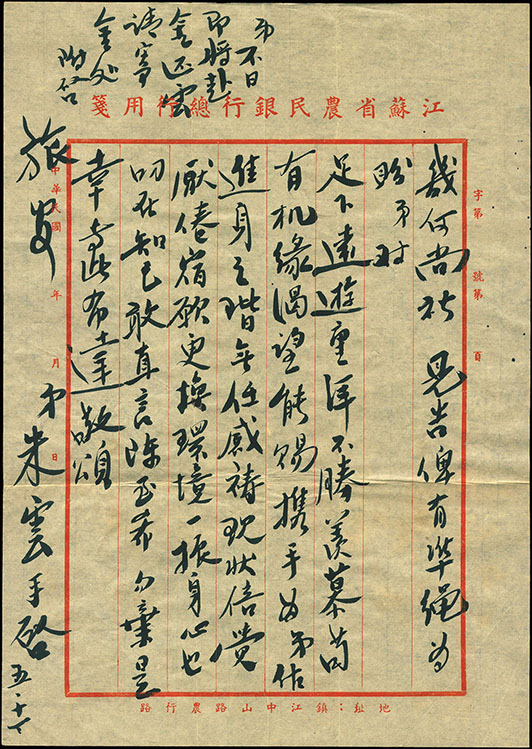 江蘇省農民銀行總行用箋
字第 號第 頁
幾何尚祈 見告俾有準繩為
盼弟對
足下遠遊重洋不勝羨慕苟
有机緣渴望能賜攜手為弟佔
進身之階無任感禱現狀倍覺
厭倦宿欲更換環境一振身心也
叨在知己敢直言陳至希勿棄是
幸專此布達敬頌
旅安
弟朱雲手啓 五·十
弟不日
即將赴
金返雲
請寄
金処
附啓
中華民國 年 月 日
地址：鎮江中山路農行路